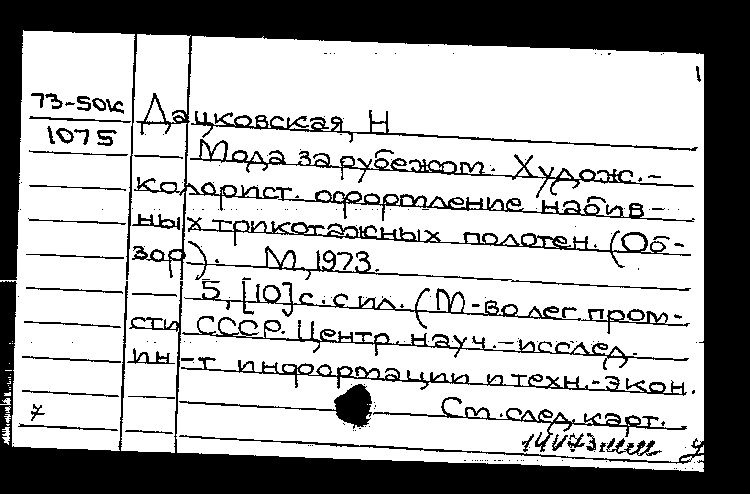 1
73-50к Дацковская, Н
1075
Мода за рубежом. Худож.-
колорист. оформление набив-
ных трикотажных полотен. (Об-
зор). М., 1973.
5, [10] с. с ил. (М-во лег. пром-
сти СССР. Центр. науч.-исслед.
ин-т информации и техн.-экон.
См. след. карт.
7
14 V 73